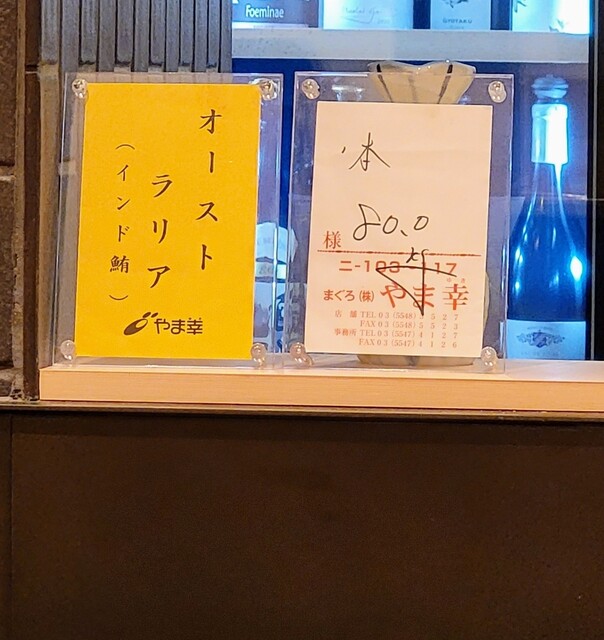 Foeminae
GYOTAKU
オースト
ラリア
（インド鮪）
やま幸
本
80.0
様
まぐろ(株) やま幸
店舗 TEL 03 (5548) 5527
FAX 03 (5548) 5523
事務所 TEL 03 (5547) 4127
FAX 03 (5547) 4126